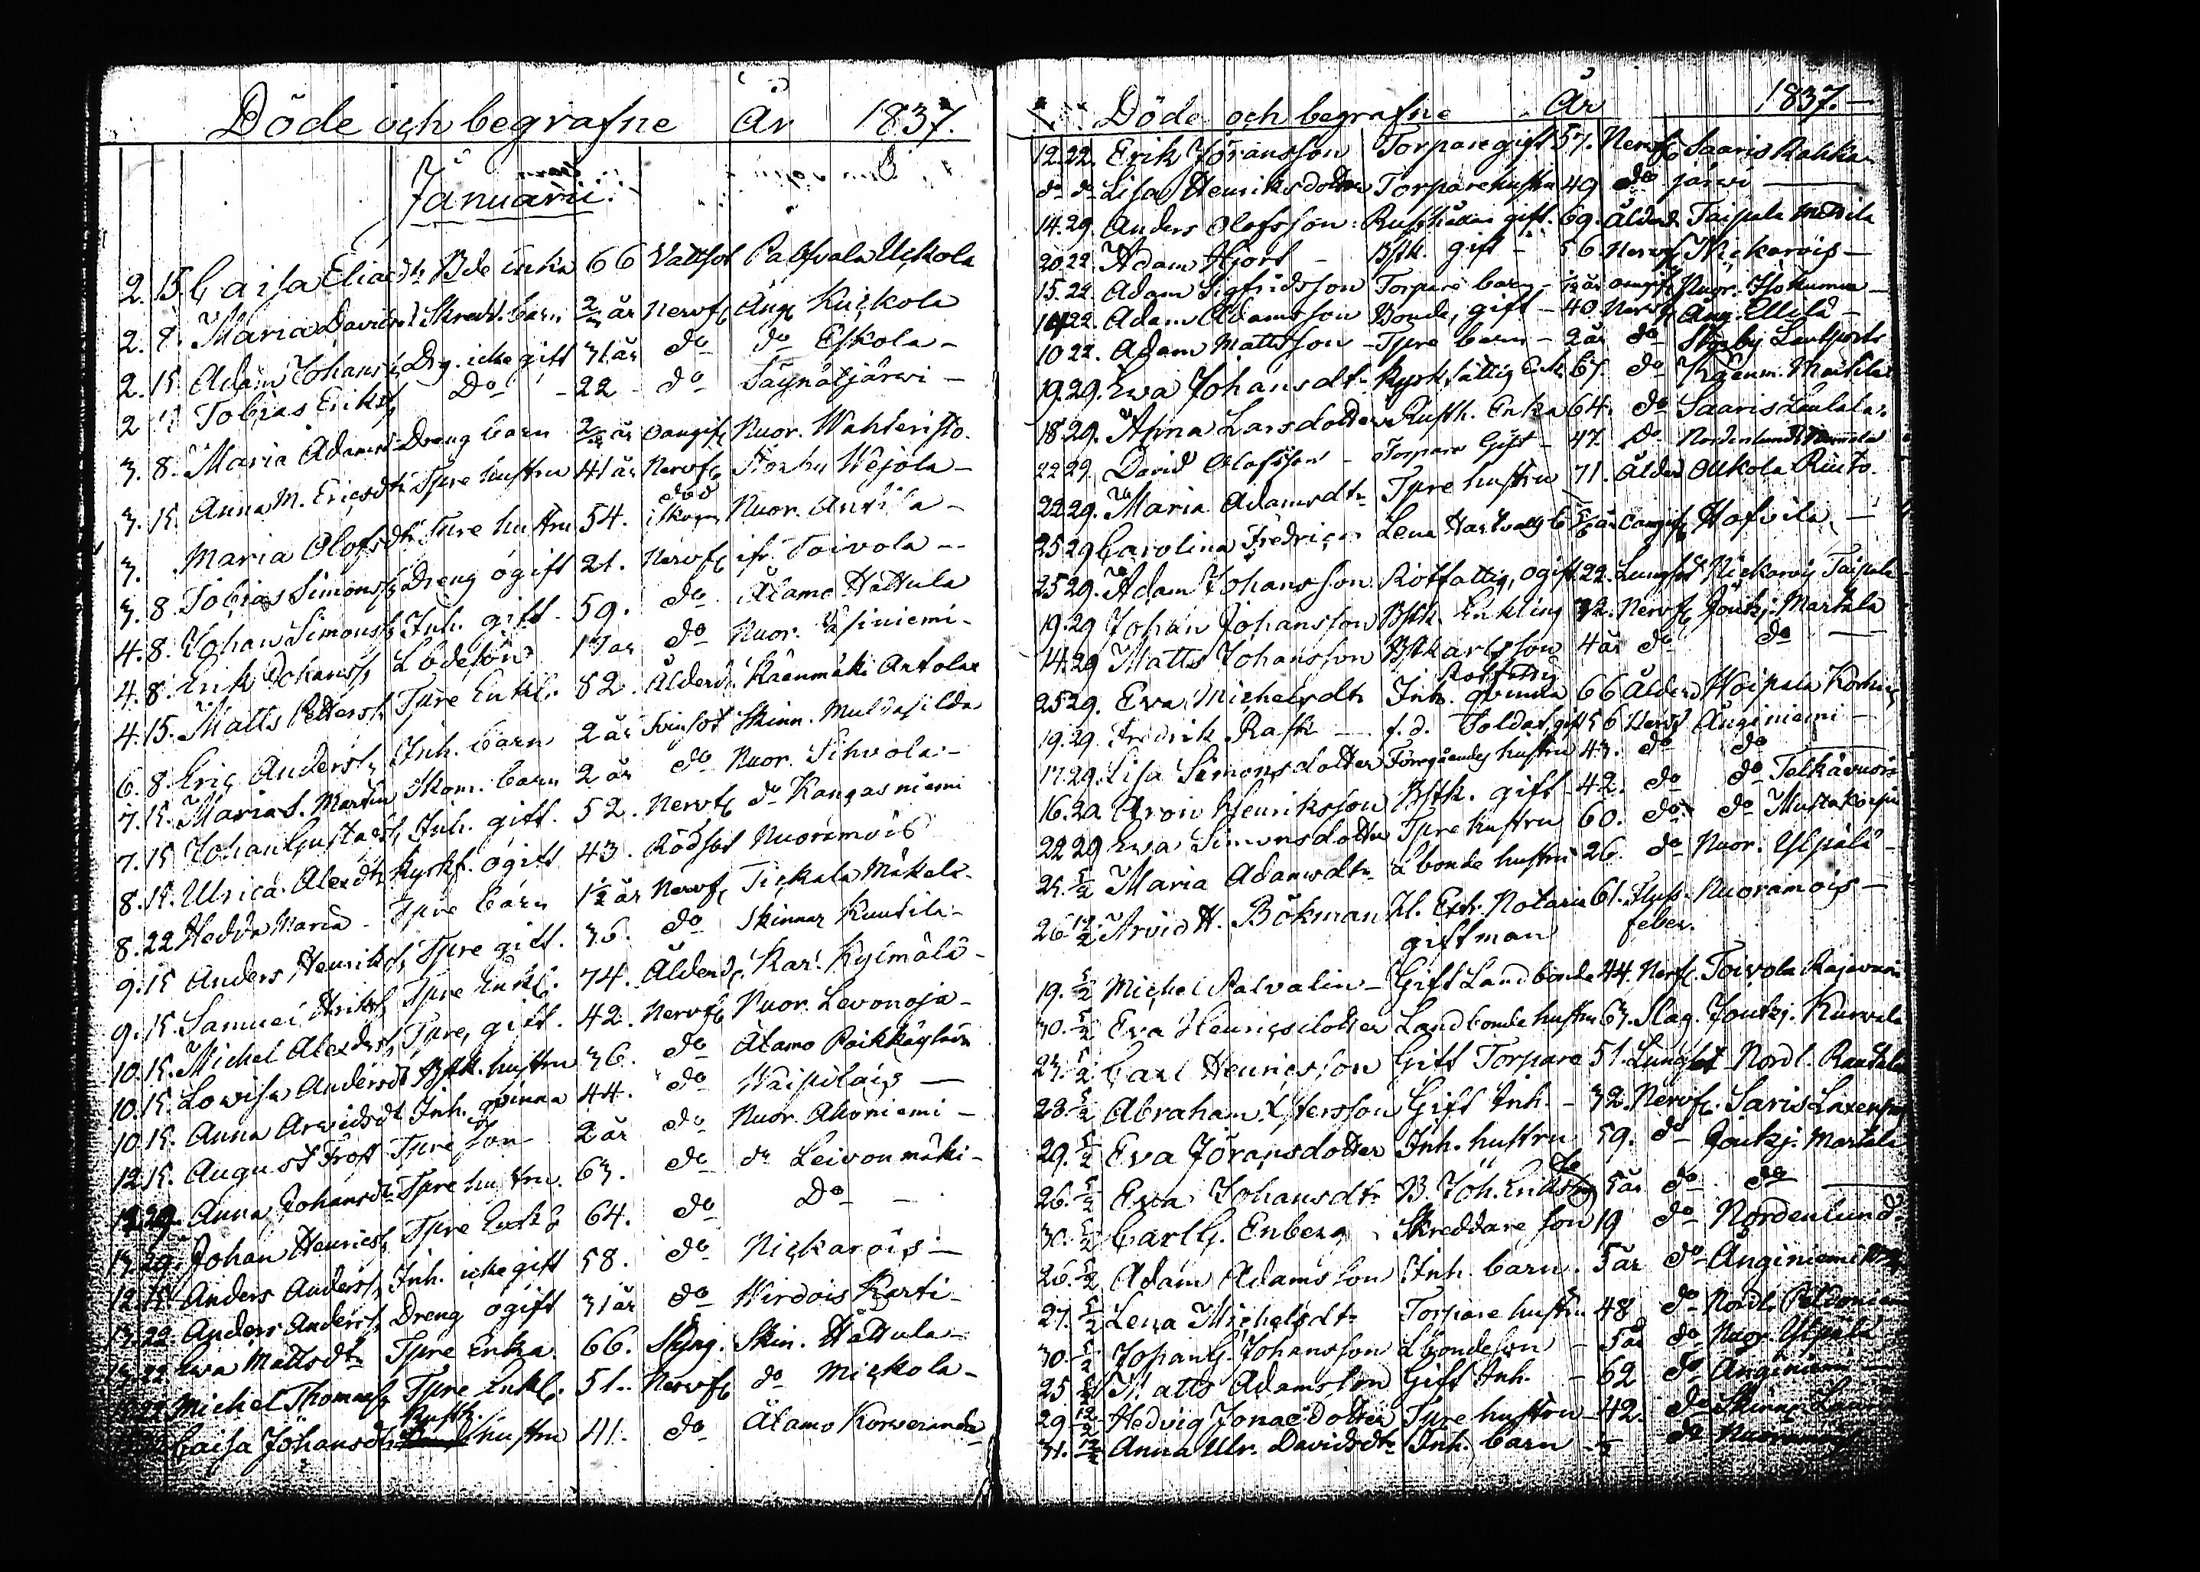 Döde och begrafne År 1837.
Januarii
2. 15. Caisa Eliædr Bde Enka 66 Vattsot Palsvala Uckola
2. 8. Maria Davidsd Skredd. barn 2/m år Nervf Äng Kuckola
2. 15. Adam Johanss Drg. icke gift 31 år do do Eskola -
2 Tobias Erikss Do - 22 do Säynätjärvi -
3. 8. Maria Adamsd Dreng barn år oangif Nuor. Wahteristo.
3. 15. Anna M. Ericsdtr Tpre hustru 41 år Nervf Storby Wejola -
3. Maria Olofsdtr Tpre hustru 54. död i skogen Nuor. Anttila -
3. 8. Tobias Simonss Dreng ogift 21. Nervf Toivola -
4. 8. Johan Simonss Inh. gift. 59. do Ätamo Hattula
4. 8. Erik Johanss Lbdeson 17 år do Nuor. Väsiniemi -
4. 15. Matts Petterss Tpre Enkl. 82. Ålderd. Käenmäki Anttolae
6. 8. Eric Anderss Inh. barn 2 år Tvinsot Skinn. Muldasilda
7. 15. Maria S. Martin Skom. barn 2 år do Nuor. Sihvola -
7. 15 Johan Gustafss Inh. gift. 52. Nervf do Kangasniemi
8. 15. Ulrica Alexdtr Kyrkf. ogift 43. Rödsot Nuoramois
8. 22 Hedda Maria - Tpre barn 1 1/2 år Nervf Tickala Mäkelä -
9. 15 Anders Henrikss Tpre gift. 36. do Skinnar Kuutila -
9. 15. Samuel Henrikss Tpre Enkl. 74. Ålderd. Kar. Kylmälä -
10. 15. Michel Alexdss Tpre, gift. 42. Nervf Nuor. Levonoja -
10. 15. Lowisa Andersdt Bstk. hustru 36. do Ätamo Poikkäylän
10. 15. Anna Arvidsdt Inh. qvinna 44. do Waipilais -
12. 15. August Frost Tpre Son 2 år do Nuor. Ahoniemi -
29. Anna Johansdt Tpre hustru. 63. do do Leivonmäki -
29. Johan Henricss Tpre Enkl 64. do Do -
12. 15 Anders Anderss Inh. icke gift 58. do Nickarois -
13. 22. Anders Anderss Dreng ogift 31 år do Wirdois Kurti -
22 Ewa Mattsdtr Tpre Enka. 66. Styng. Skin. Hattula -
22 Michel Thomass Tpre Enkl. 51. Nervf do Mickola -
Caisa Johansdtr Rusth. hustru 41. do Ätamo Korveranda
Döde och begrafne År 1837. -
12. 22. Erik Jöransson Torpare gift 57. Nervf Saaris Rakka
do do Lisa Henriksdotter Torpare hustru 49 do järwi
14. 29. Anders Olofsson Rusthållare gift. 69. Ålderd Taipala Mattila
20. 22. Adam Hjort - Bstk. gift - 56 Nervf Nickarois -
15. 22. Adam Sigfridsson Torpare barn - år oangif Nuor. Hokuma -
22. Adam Adamsson Bonde, gift - 40. Nervf Äng. Ullilä -
10 22. Adam Mattsson - Tpre barn - 2 år do Storby
19. 29. Ewa Johansdtr Kyrk. fattig Enk. 67. do Käenm. Mattilas
18. 29. Anna Larsdotter Rusth. Enka 64. do Saaris Laulala.
22 29. David Olofsson - Torpare Gift - 47. do Nordenlund
22 29. Maria Adamsdtr Tpre hustru 71. Ålderd Ollkola Rinto.
25 29 Carolina Fredrica Lena Hartvalls b. år oangif Hofvila -
25 29. Adam Johansson Rotfattig, ogift 22. Lungsot Nickarois Taipale
19. 29 Johan Johansson Bstk. Enkling 72. Nervf Joutsj. Marttala
14. 29 Matts Johansson Bstkarlsson 4 år do do -
25 29. Eva Michelsdtr Inh. Rotfattig qvinna 66 Ålderd Woipala
19. 29 Fredrik Rask - f.d. Soldat, gift 56 Nervf Änginiemi -
17. 29. Lisa Simonsdotter Föregåendes hustru 43. do do
16. 22. Aron Henriksson Bstk. gift - 42. do do Telkävuori
22 29 Ewa Simonsdotter Tpre hustru 60. do do Mustakorpi
25. 5/2 Maria Adamsdtr Lbonde hustru 26. do Nuor. Ylipälä -
26. 12/2 Arvid H. Bökman H. Extr. Notarie 61. Flyss- Nuoramois -
giftman feber.
19. 5/2 Michel Palvalin - Gift Landbonde 44. Nerf. Toivola Rajavuori
30. 5/2 Eva Henricsdotter Landbonde hustru 63. Slag. Joutsj. Kurvala
23. 5/2 Carl Henricsson Gift Torpare 51. Lungsot Nordl. Rantala
28. 5/2 Abraham Estersson Gift Inh. - 32. Nervf. Saris
29. 5/2 Eva Jöransdotter Inh. hustru 59. do Joutsj. Marttala
26. 5/2 Ewa Johansdtr B. Joh. Eriks 5 år do do
30. 5/2 Carl G. Enberg Skreddare son 19 do Nordenlund
26. 5/2 Adam Adamsson Inh. barn. 5 år do Änginiemi
27. 5/2 Lena Michelsdtr Torpare hustru 48 do Nordl. Peltoniemi
30. 5/2 Johan G. Johansson Lbondeson - 5 år do Nuor. Ylipälä
25 Matts Adamsson Gift Inh. - 62 do Änginiemi
29. 12/2 Hedvig Jonaedotter Tpre hustru - 42. do Skinna
31. 12/2 Anna Ulr. Davidsdtr Inh. barn - do Nuoramois